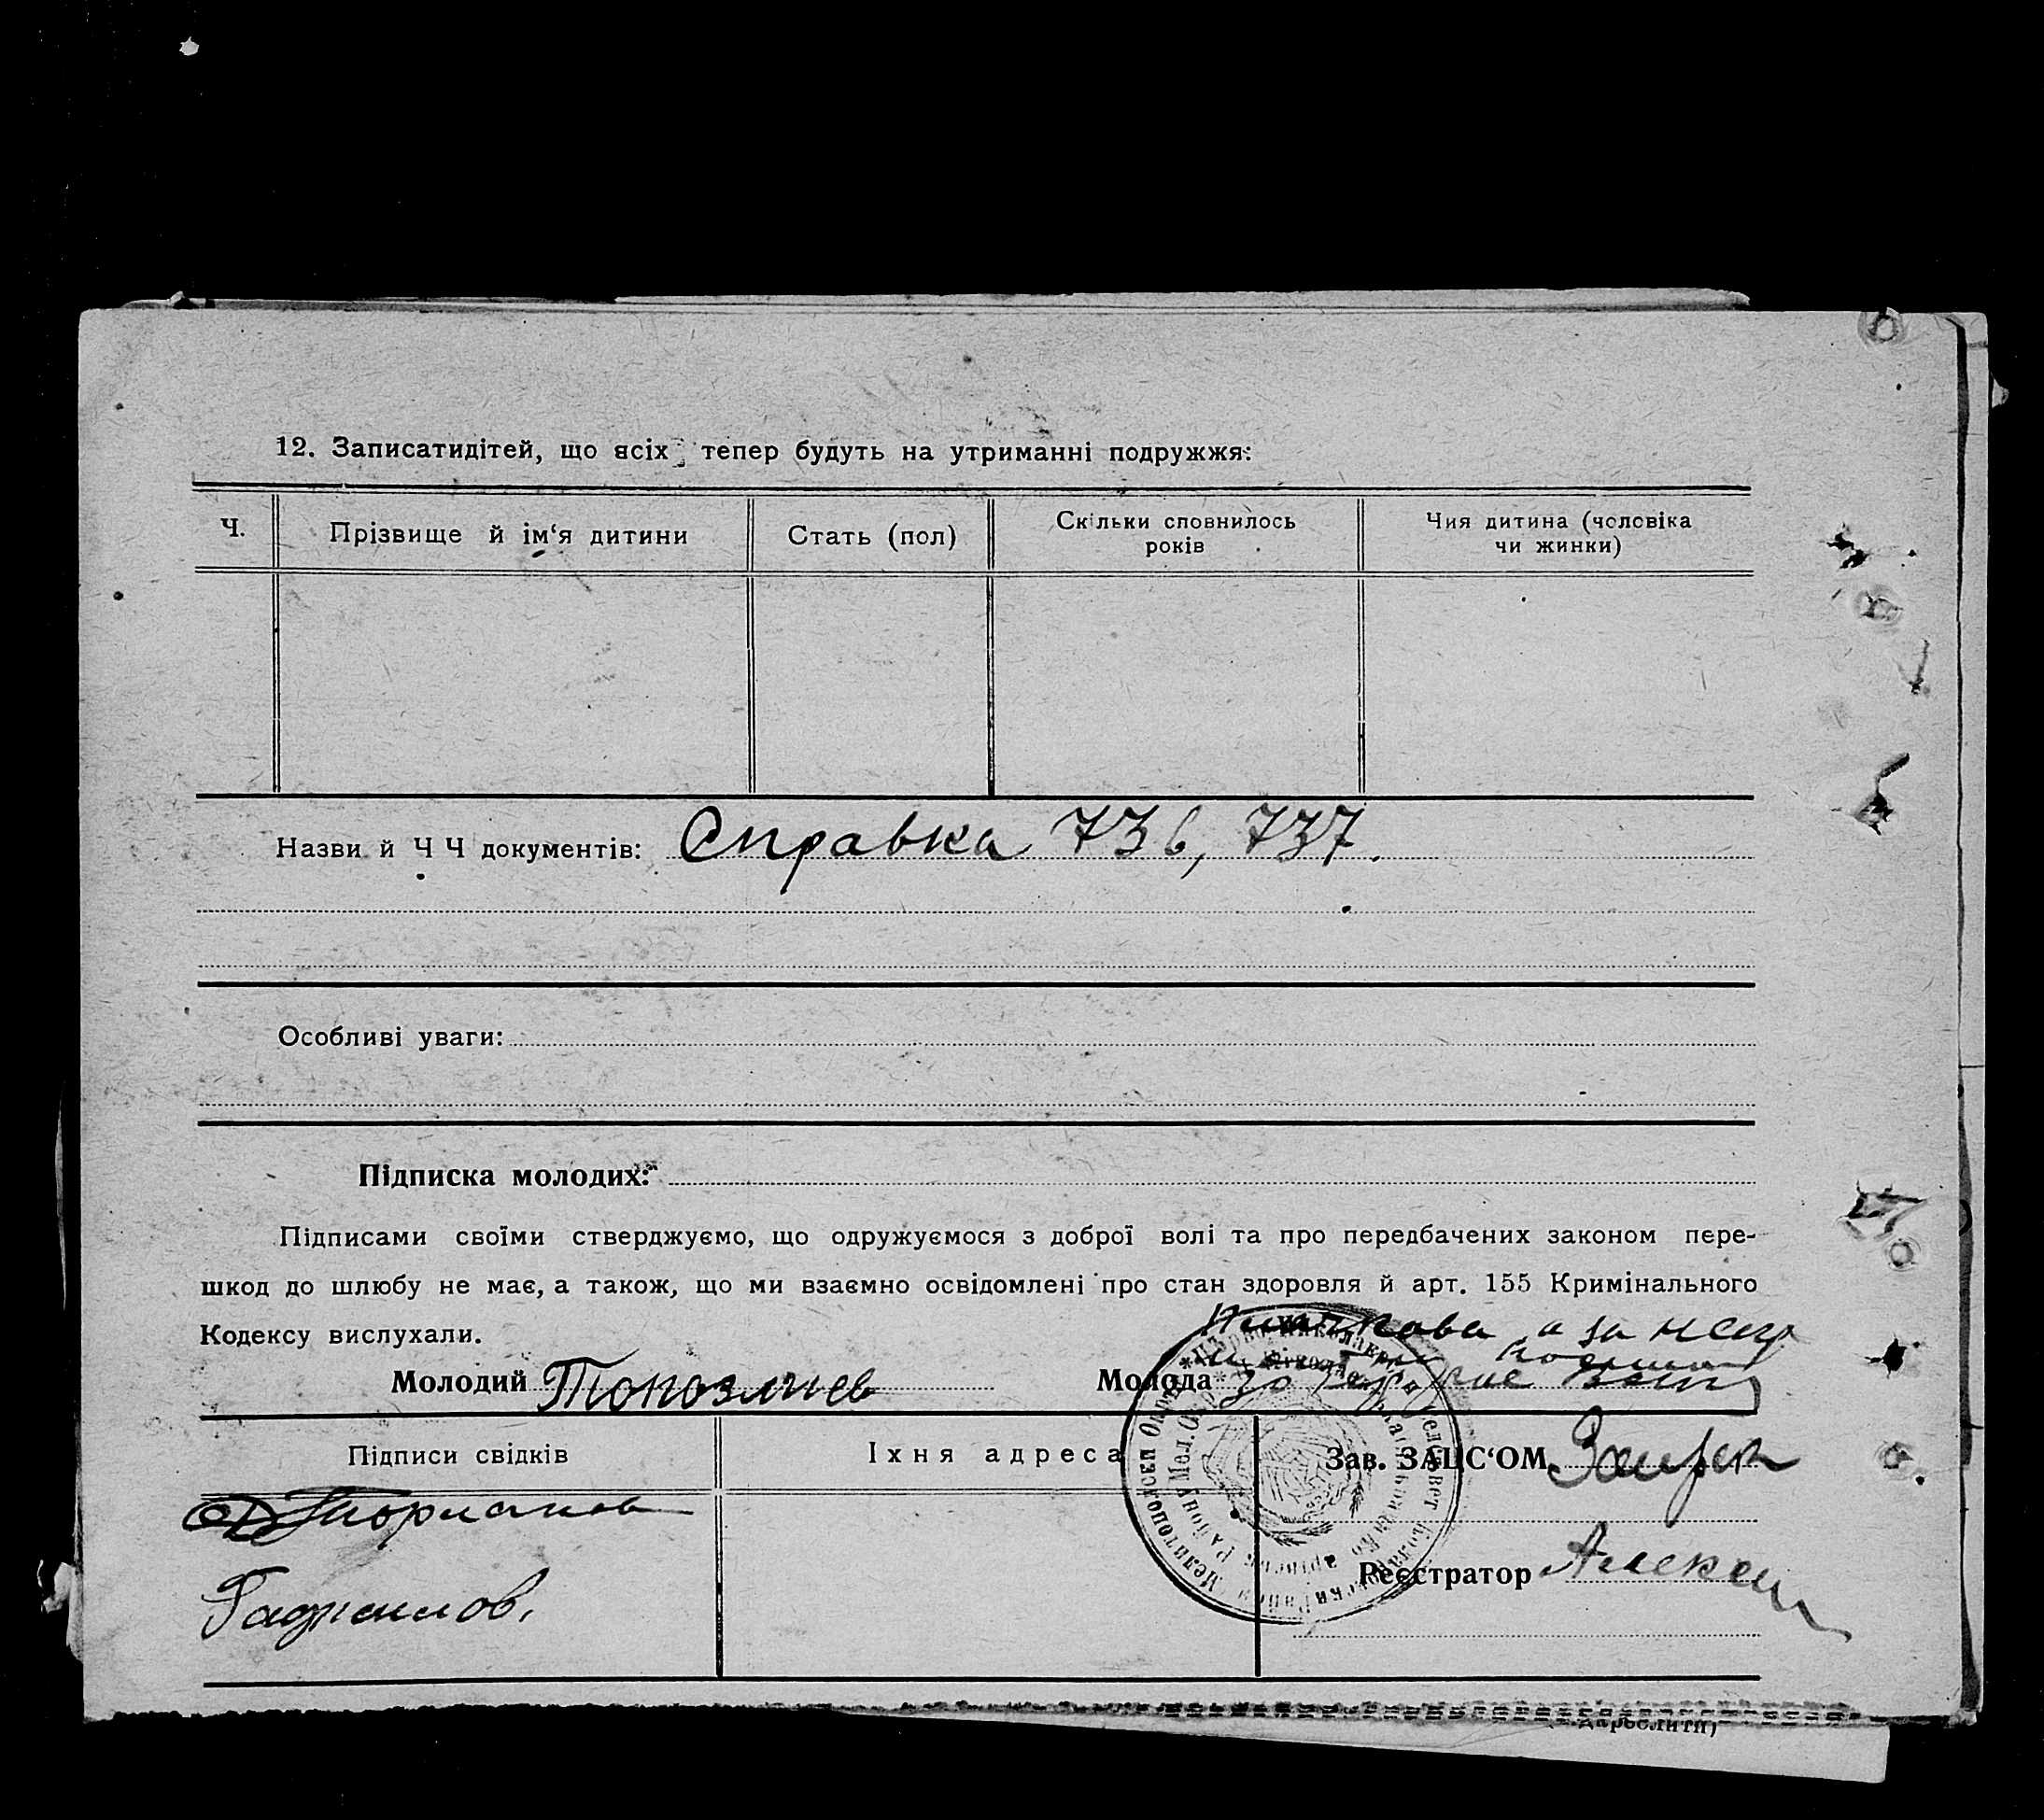 12. Записатидітей, що всіх тепер будуть на утриманні подружжя:
Ч.
Прізвище й ім‘я дитини
Стать (пол)
Скільки сповнилось
років
Чия дитина (чоловіка
чи жинки)
Назви й Ч Ч документів: Справка 736, 737.
Особливі уваги:
Підписка молодих:
Підписами своїми стверджуємо, що одружуємося з доброї волі та про передбачених законом пере-
шкод до шлюбу не має, а також, що ми взаємно освідомлені про стан здоровля й арт. 155 Кримінального
Кодексу вислухали.
а за нея
Молодий Топозлиев
Молода
Підписи свідків
Їхня адреса
Зав. ЗАЦС‘ОМ
Гаджилов.
Реєстратор Алексеи